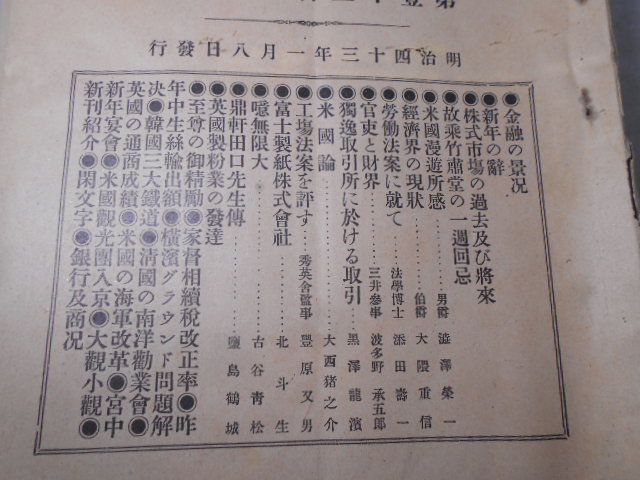 明治四十三年一月八日發行
◉金融の景況
◉新年の辭
◉株式市場の過去及び將來
◉故乘竹肅堂の一週回忌
◉米國漫遊所感 男爵 澁澤榮一
◉經濟界の現狀 伯爵 大隈重信
◉勞働法案に就て 法學博士 添田壽一
◉官吏と財界 三井參事 波多野承五郎
◉獨逸取引所に於ける取引 黑澤龍濱
◉米國論 大西猪之介
◉工塲法案を評す 秀英舍監事 豐原又男
◉富士製紙株式會社 北斗生
◉噫無限大 古谷靑松
◉鼎軒田口先生傳 鹽島鶴城
◉英國製粉業の發達
◉至尊の御精勵◉家督相續稅改正率◉昨
年中生絲輸出額◉橫濱グラウンド問題解
決◉韓國三大鐵道◉淸國の南洋勸業會◉
英國の通商成績◉米國の海軍改革◉宮中
新年宴會◉米國觀光團入京◉大觀小觀◉
新刊紹介◉閑文字◉銀行及商況